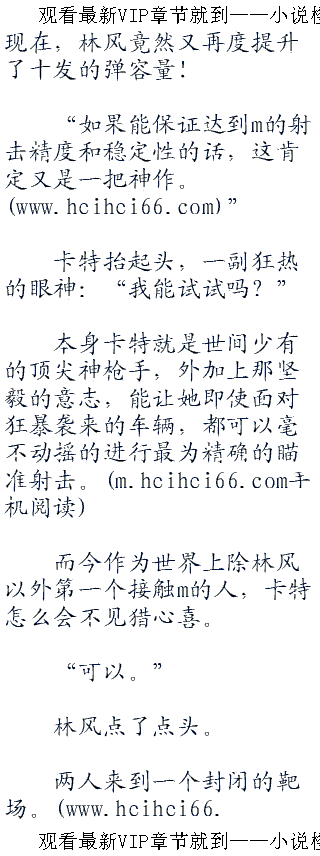 观看最新VIP章节就到——小说
现在，林风竟然又再度提升
了十发的弹容量！
“如果能保证达到m的射
击精度和稳定性的话，这肯
定又是一把神作。
(www.hcihci66.com)”
卡特抬起头，一副狂热
的眼神：“我能试试吗？”
本身卡特就是世间少有
的顶尖神枪手，外加上那坚
毅的意志，能让她即使面对
狂暴袭来的车辆，都可以毫
不动摇的进行最为精确的瞄
准射击。(m.hcihci66.com手
机阅读)
而今作为世界上除林风
以外第一个接触m的人，卡特
怎么会不见猎心喜。
“可以。”
林风点了点头。
两人来到一个封闭的靶
场。(www.hcihci66.
观看最新VIP章节就到——小说